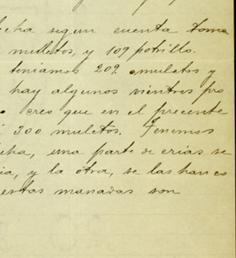 echa segun cuenta toma
muletos, y 109 potrillo
teniamos 202 muletos y
hay algunos vientres pro
creo que en el precente
300 muletos. Tenemos
echa, una parte de crias se
ia, y la otra, se las han es
estas manadas son